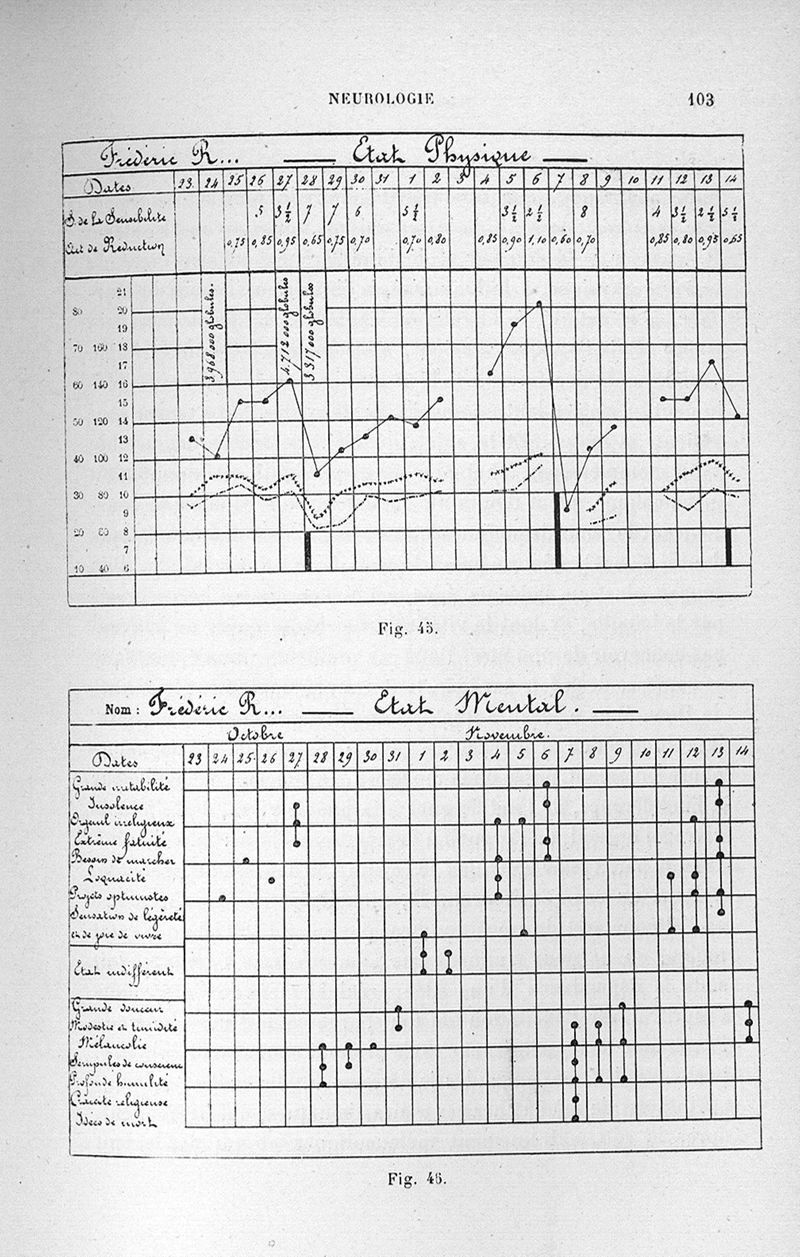 NEUROLOGIE 103
Frédéric R... — Etat Physique —
Dates 23 24 25 26 27 28 29 30 31 1 2 3 4 5 6 7 8 9 10 11 12 13 14
S. de la Sensibilité 5 3½ 7 7 6 5½ 3½ 2½ 8 4 3½ 2½ 5½
de Réduction 0,75 0,85 0,95 0,65 0,75 0,70 0,70 0,80 0,85 0,90 1,10 0,60 0,70 0,85 0,80 0,95 0,65
3968000 globules.
4,712 000 globules
3317000 globules
21
80 20
19
70 160 18
17
60 140 16
15
50 120 14
13
40 100 12
11
30 80 10
9
20 60 8
7
10 40 6
Fig. 45.
Nom : Frédéric R... — Etat Mental. —
Octobre Novembre.
Dates 23 24 25 26 27 28 29 30 31 1 2 3 4 5 6 7 8 9 10 11 12 13 14
Grande irritabilité
Insolence
Orgueil irreligieux
Extrême fatuité
Besoin de marcher
Loquacité
Projets optimistes
Sensation de légéreté
et de joie de vivre
Etat indifférent
Grande douceur
Modestie et timidité
Mélancolie
Scrupules de conscience
Profonde humilité
religieuse
Idées de mort
Fig. 46.